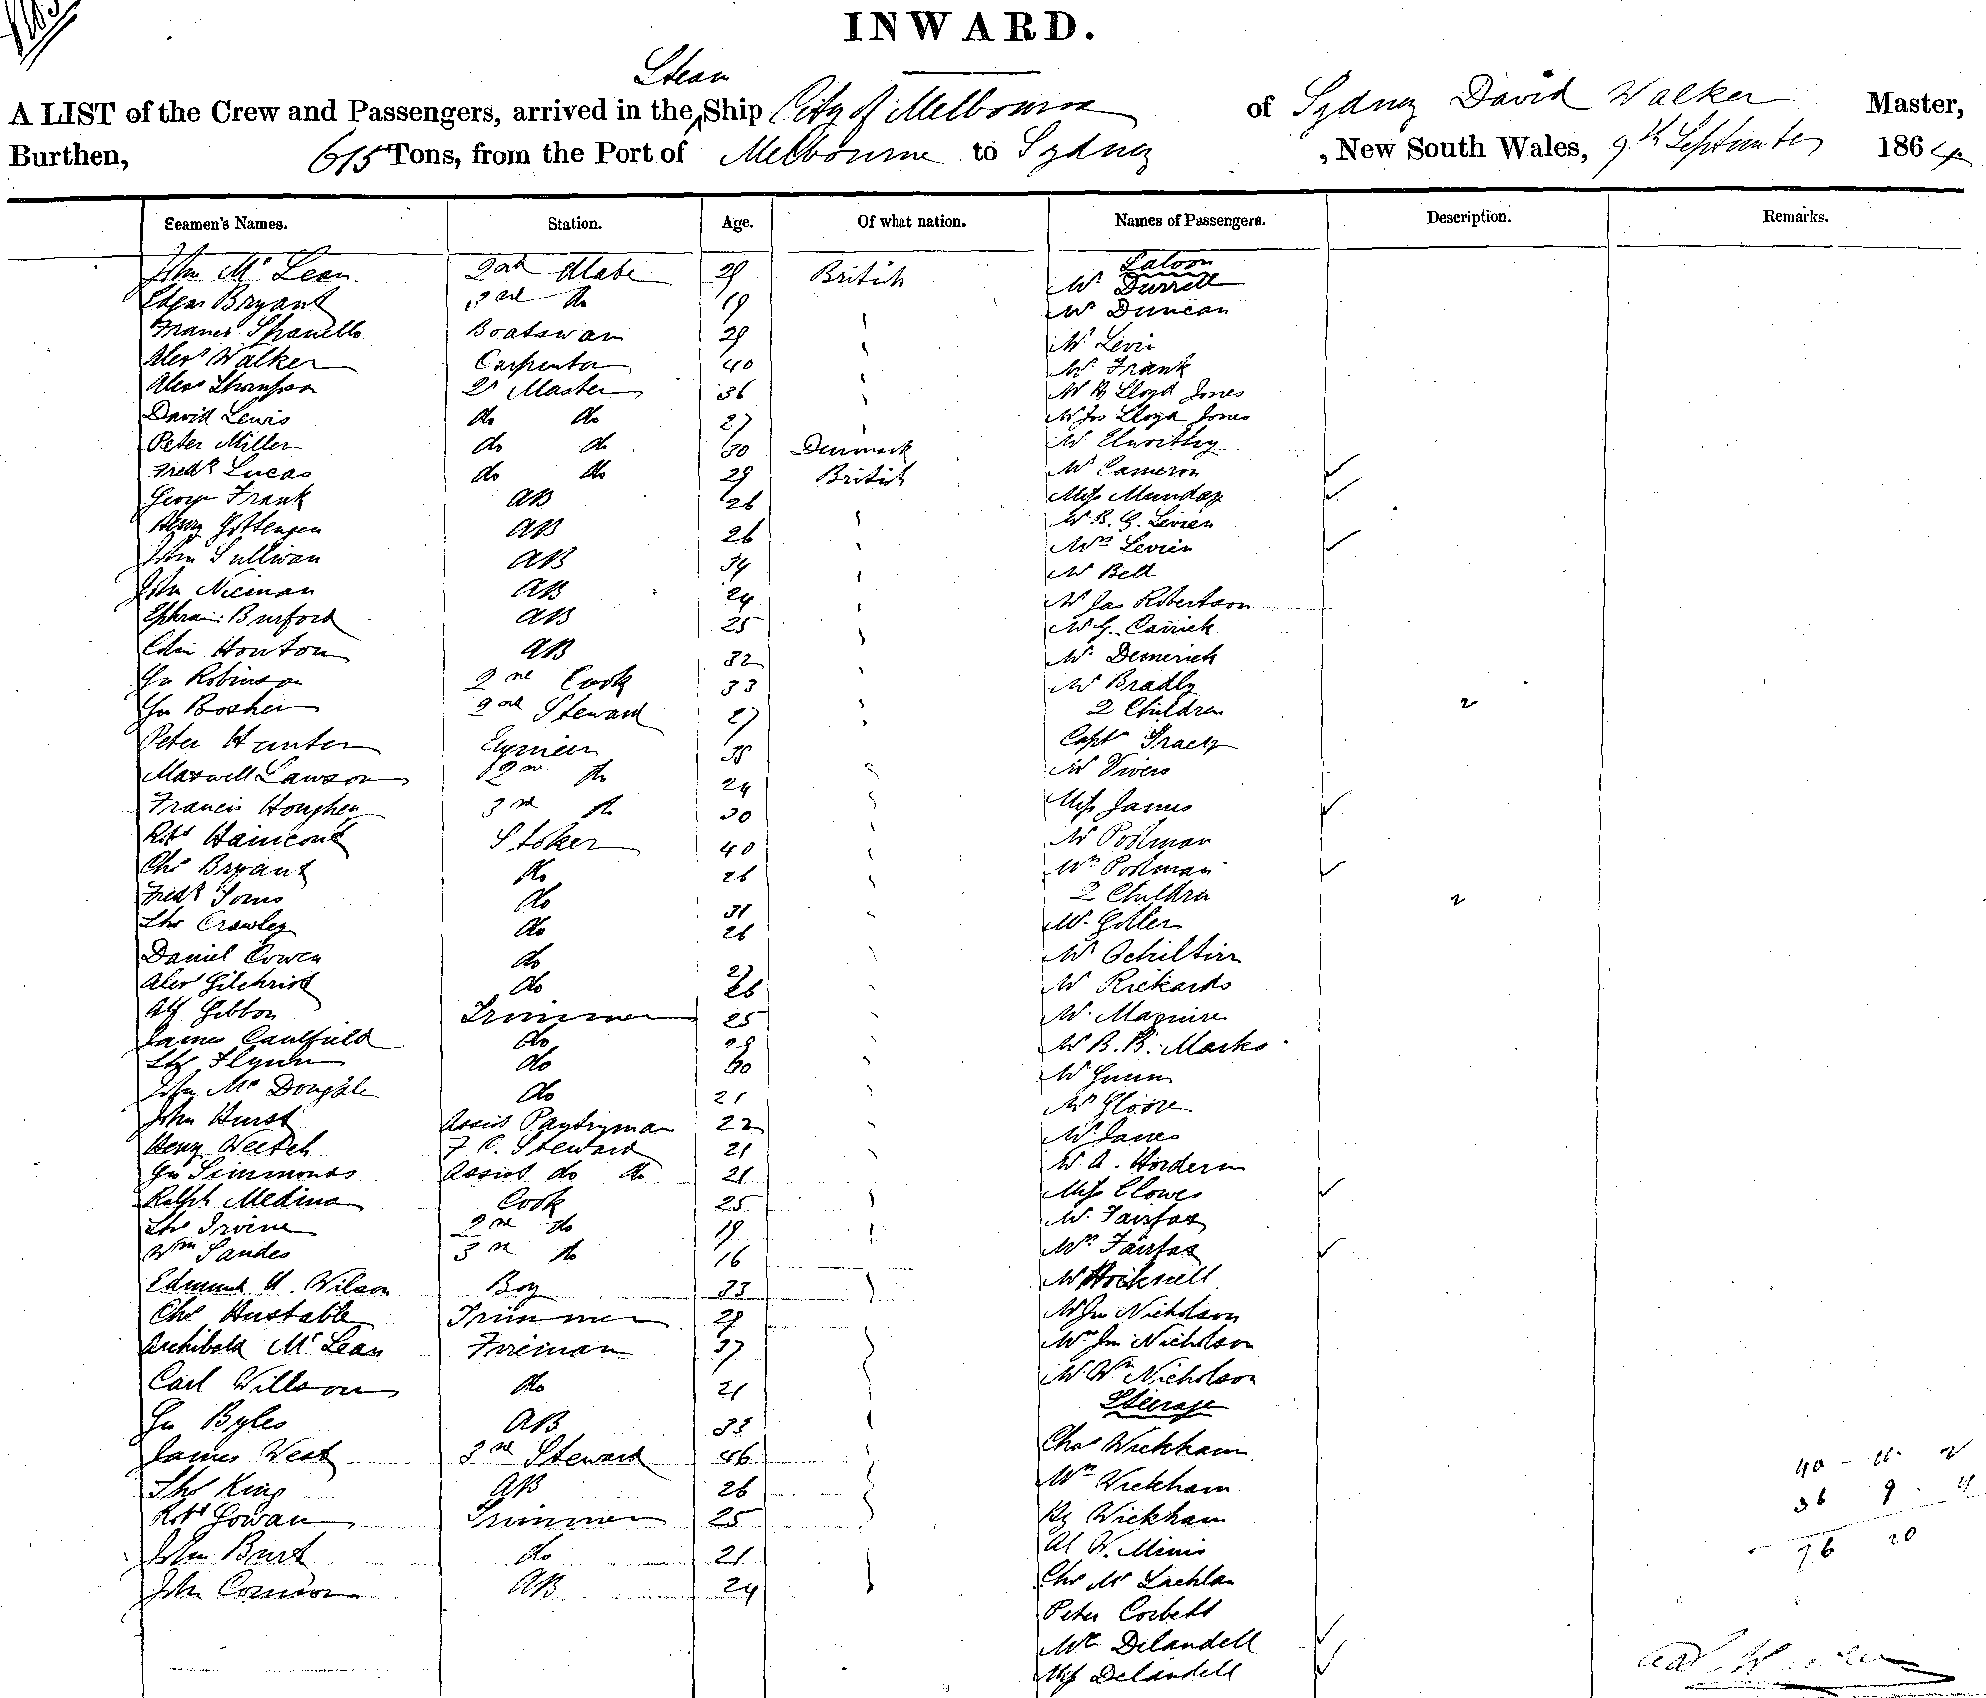 INWARD.
Steam
A LIST of the Crew and Passengers, arrived in the Ship City of Melbourne of Sydney David Walker Master,
Burthen, 615 Tons, from the Port of Melbourne to Sydney , New South Wales, 9th September 1864
Seamen's Names. Station. Age. Of what nation. Names of Passengers. Description. Remarks.
Saloon
John Mc Lean 2nd Mate 29 British Mr Durrell
Edgar Bryant 3rd do 19 Mr Duncan
Boatswan 29 Mr Levi
Alexr Walker Carpenter 40 Mr Frank
Alexr Thompson Qr Master 36 Mr Lloyd Jones
David Lewis do do 27 Mr Jos Lloyd Jones
Peter Miller do do 30 Denmark Mr
Fredk Lucas do do 29 British Mr Cameron
George Frank AB 26 Miss Munday
Henry Gottengen AB 26 Mr B. G. Levien
John Sullivan AB 34 Mrs Levien
John Nieman AB 24 Mr Bell
Burford AB 25 Mr Jas Robertson
Houston AB 32 Mr G. Carrick
Jno Robinson 2nd Cook 33 Mr Demerick
Jno Bosher 2nd Steward 27 Mr Bradly
2 Children 2
Peter Hunter Engineer 38 Capt Tracey
Maxwell Lawson 2nd do 24 Mr Vivers
Francis Houghen 3rd do 30 Miss James
Robt Stoker 40 Mr Postman
Chs Bryant do 26 Mrs Postman
Fredk Toms do 31 2 Children 2
Thos Crawley do 26 Mr Goller
Daniel Cowen do 27 Mr Ochiltree
Alexr Gilchrist do 26 Mr Rickards
Alf Gibbon Trimmer 25 Mr Maguire
James Caulfield do 29 Mr B. B. Marks
Flynn do 30 Mr Gunn
John Mc Dougale do 21 Mr Gloore
John Hurst Assist Pantryman 22 Mr James
Henry Veitch F C. Steward 21 Mr A. Hordern
Jno Simmonds Assist do do 21 Miss Clowes
Ralph Medina Cook 25 Mr Fairfax
Thos Irvine 2nd do 19 Mrs Fairfax
Wm Sandes 3rd do 16 Mr
Edmund H. Wilson Boy 33 Mr Jno Nicholson
Chs Hustable Trimmer 29 Mrs Jno Nicholson
Archibald Mc Lean Fireman 37 Mr Wm Nicholson
Carl Willson do 21 Steerage
Jno Byles AB 33 Chas Wickham
James West 3rd Steward 46 Mrs Wickham
Thos King AB 26 Hy Wickham
Robt Gowan Trimmer 25 Al W. Minis
John Burt do 21 Chs Mc Lachlan
John Connor AB 24 Peter Corbett
Mrs Delandell
Miss Delandell
40 - 11 - 2
36 9 . 4
76 20